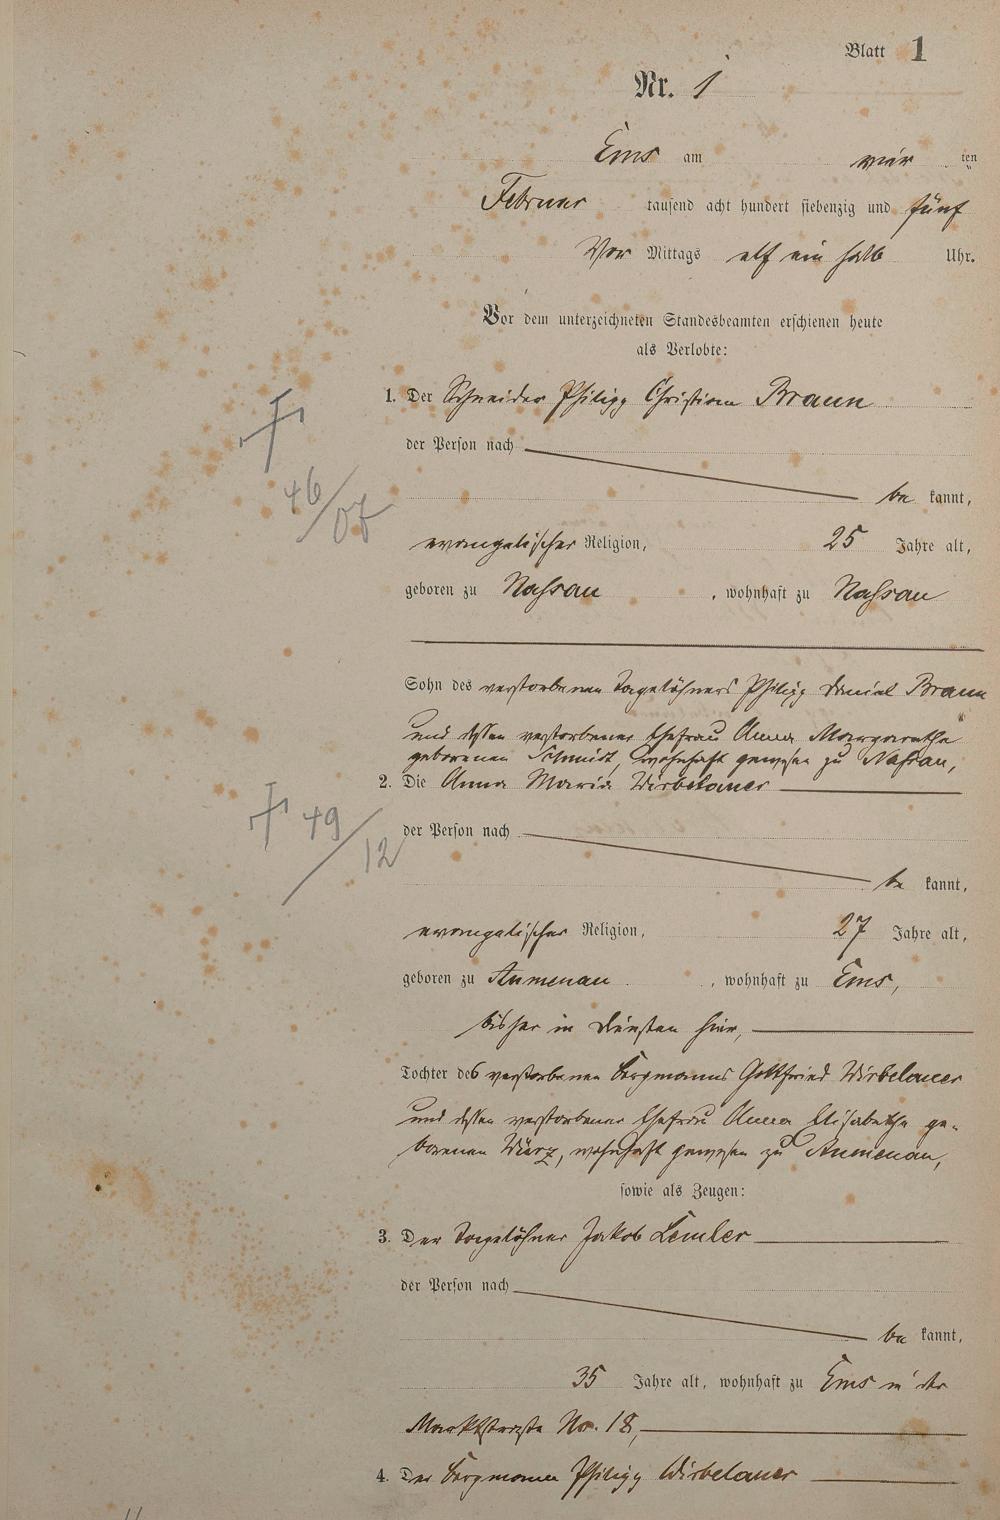 Blatt 1
Nr. 1
Ems am vier ten
Februar tausend acht hundert siebenzig und fünf
Vor Mittags elf ein halb Uhr.
Vor dem unterzeichneten Standesbeamten erschienen heute
als Verlobte:
1. Der Schneider Philipp Christian Braun
der Person nach
be kannt,
+
46/07
evangelischer Religion, 25 Jahre alt,
geboren zu Naßau, wohnhaft zu Naßau
Sohn des verstorbenen Tagelöhners Philipp Daniel Braun
und dessen verstorbener Ehefrau Anna Margaretha
geborenen Schmidt, wohnhaft gewesen zu Naßau,
2. Die Anna Maria Wirbelauer
+ 49/12
der Person nach
be kannt,
evangelischer Religion, 27 Jahre alt,
geboren zu Aumenau, wohnhaft zu Ems,
bisher in Diensten hier,
Tochter des verstorbenen Bergmanns Gottfried Wirbelauer
und dessen verstorbener Ehefrau Anna Elisabetha ge-
borenen Würz, wohnhaft gewesen zu Aumenau,
sowie als Zeugen:
3. Der Tagelöhner Jakob Lemler
der Person nach
be kannt,
35 Jahre alt, wohnhaft zu Ems in der
Marktstraße No. 18,
4. Der Bergmann Philipp Wirbelauer